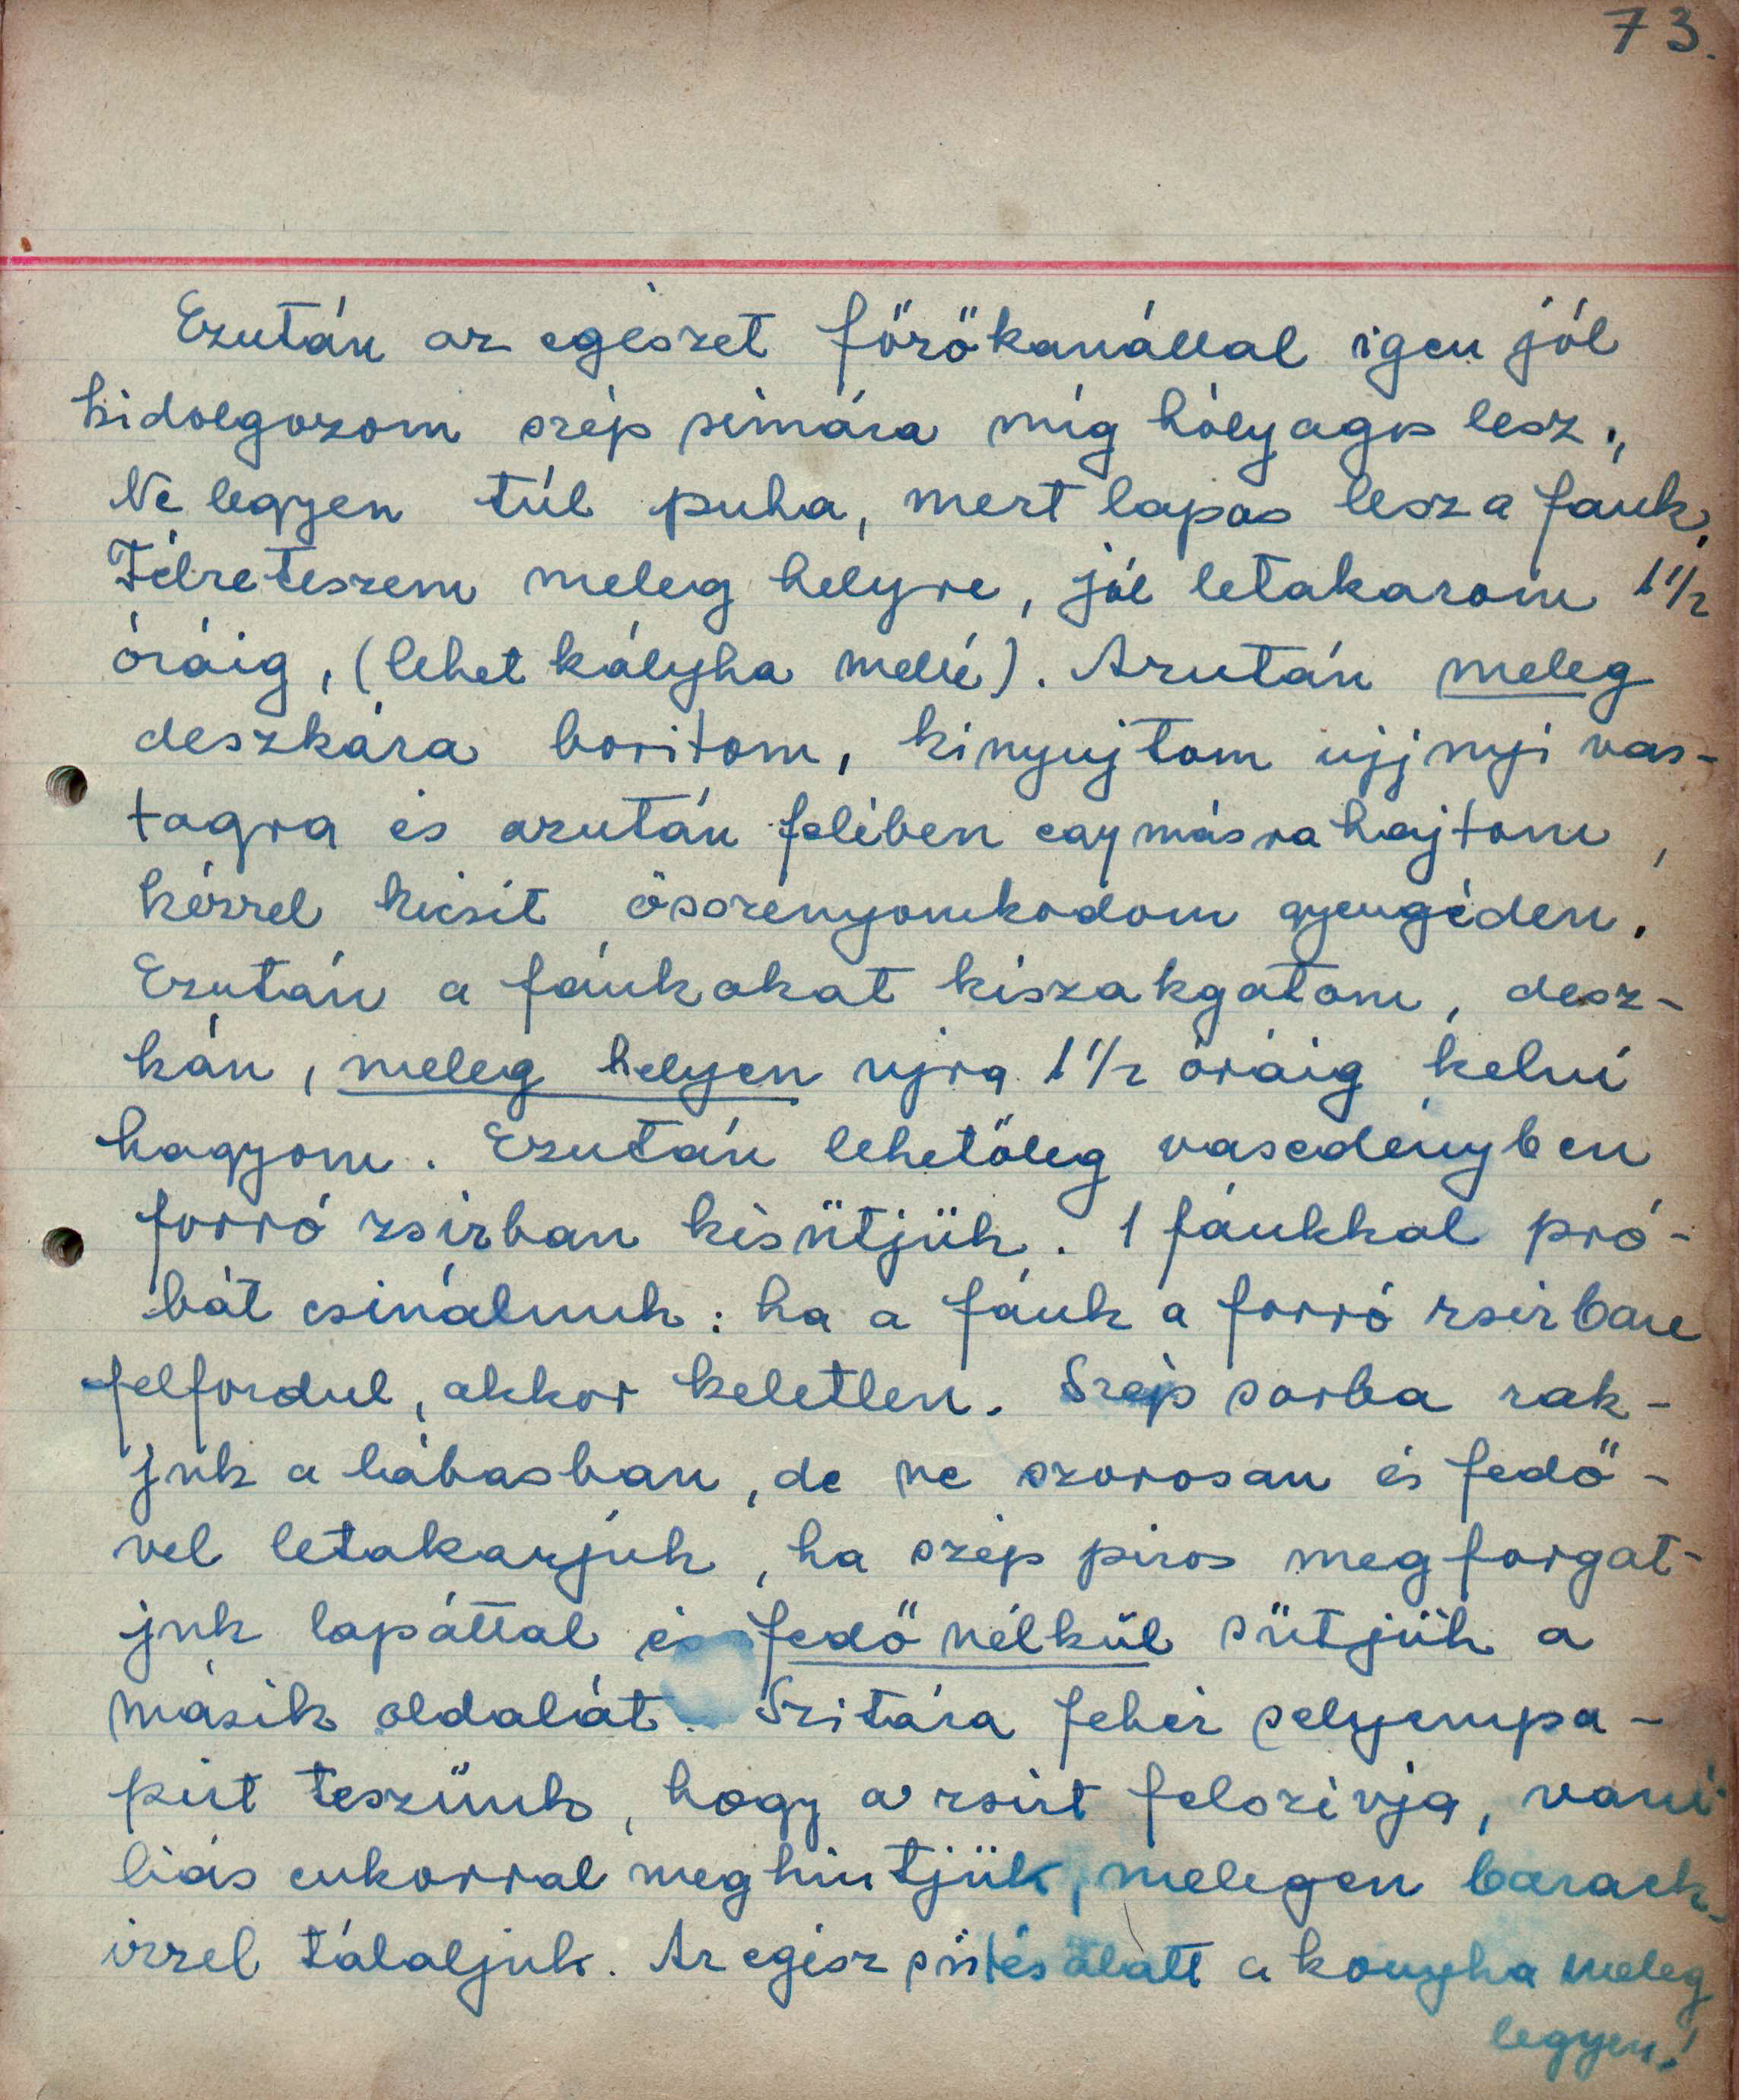 73.
Ezután az egészet főzőkanállal igen jól
kidolgozom szép simára míg hólyagos lesz.,
Ne legyen túl puha, mert lapos lesz a fánk,
Félreteszem meleg helyre, jól letakarom 1 1/2
óráig, (lehet kályha mellé). Azután meleg
deszkára boritom, kinyujtom ujjnyi vas-
tagra és azután felében egymásra hajtom,
kézzel kicsit összenyomkodom gyengéden.
Ezután a fánkokat kiszakgatom, desz-
kán, meleg helyen ujra 1 1/2 óráig kelni
hagyom. Ezután lehetőleg vasedényben
forró zsirban kisütjük. 1 fánkkal pró-
bát csinálunk: ha a fánk a forró zsirban
felfordul, akkor keletlen. Szép sorba rak-
juk a lábasban, de ne szorosan és fedő-
vel letakarjuk, ha szép piros megforgat-
juk lapáttal és fedő nélkül sütjük a
másik oldalát. Szitára fehér selyempa-
pirt teszünk, hogy a zsirt felszivja, vani-
liás cukorral meghintjük, melegen barack-
izzel tálaljuk. Az egész sütés alatt a konyha meleg
legyen!